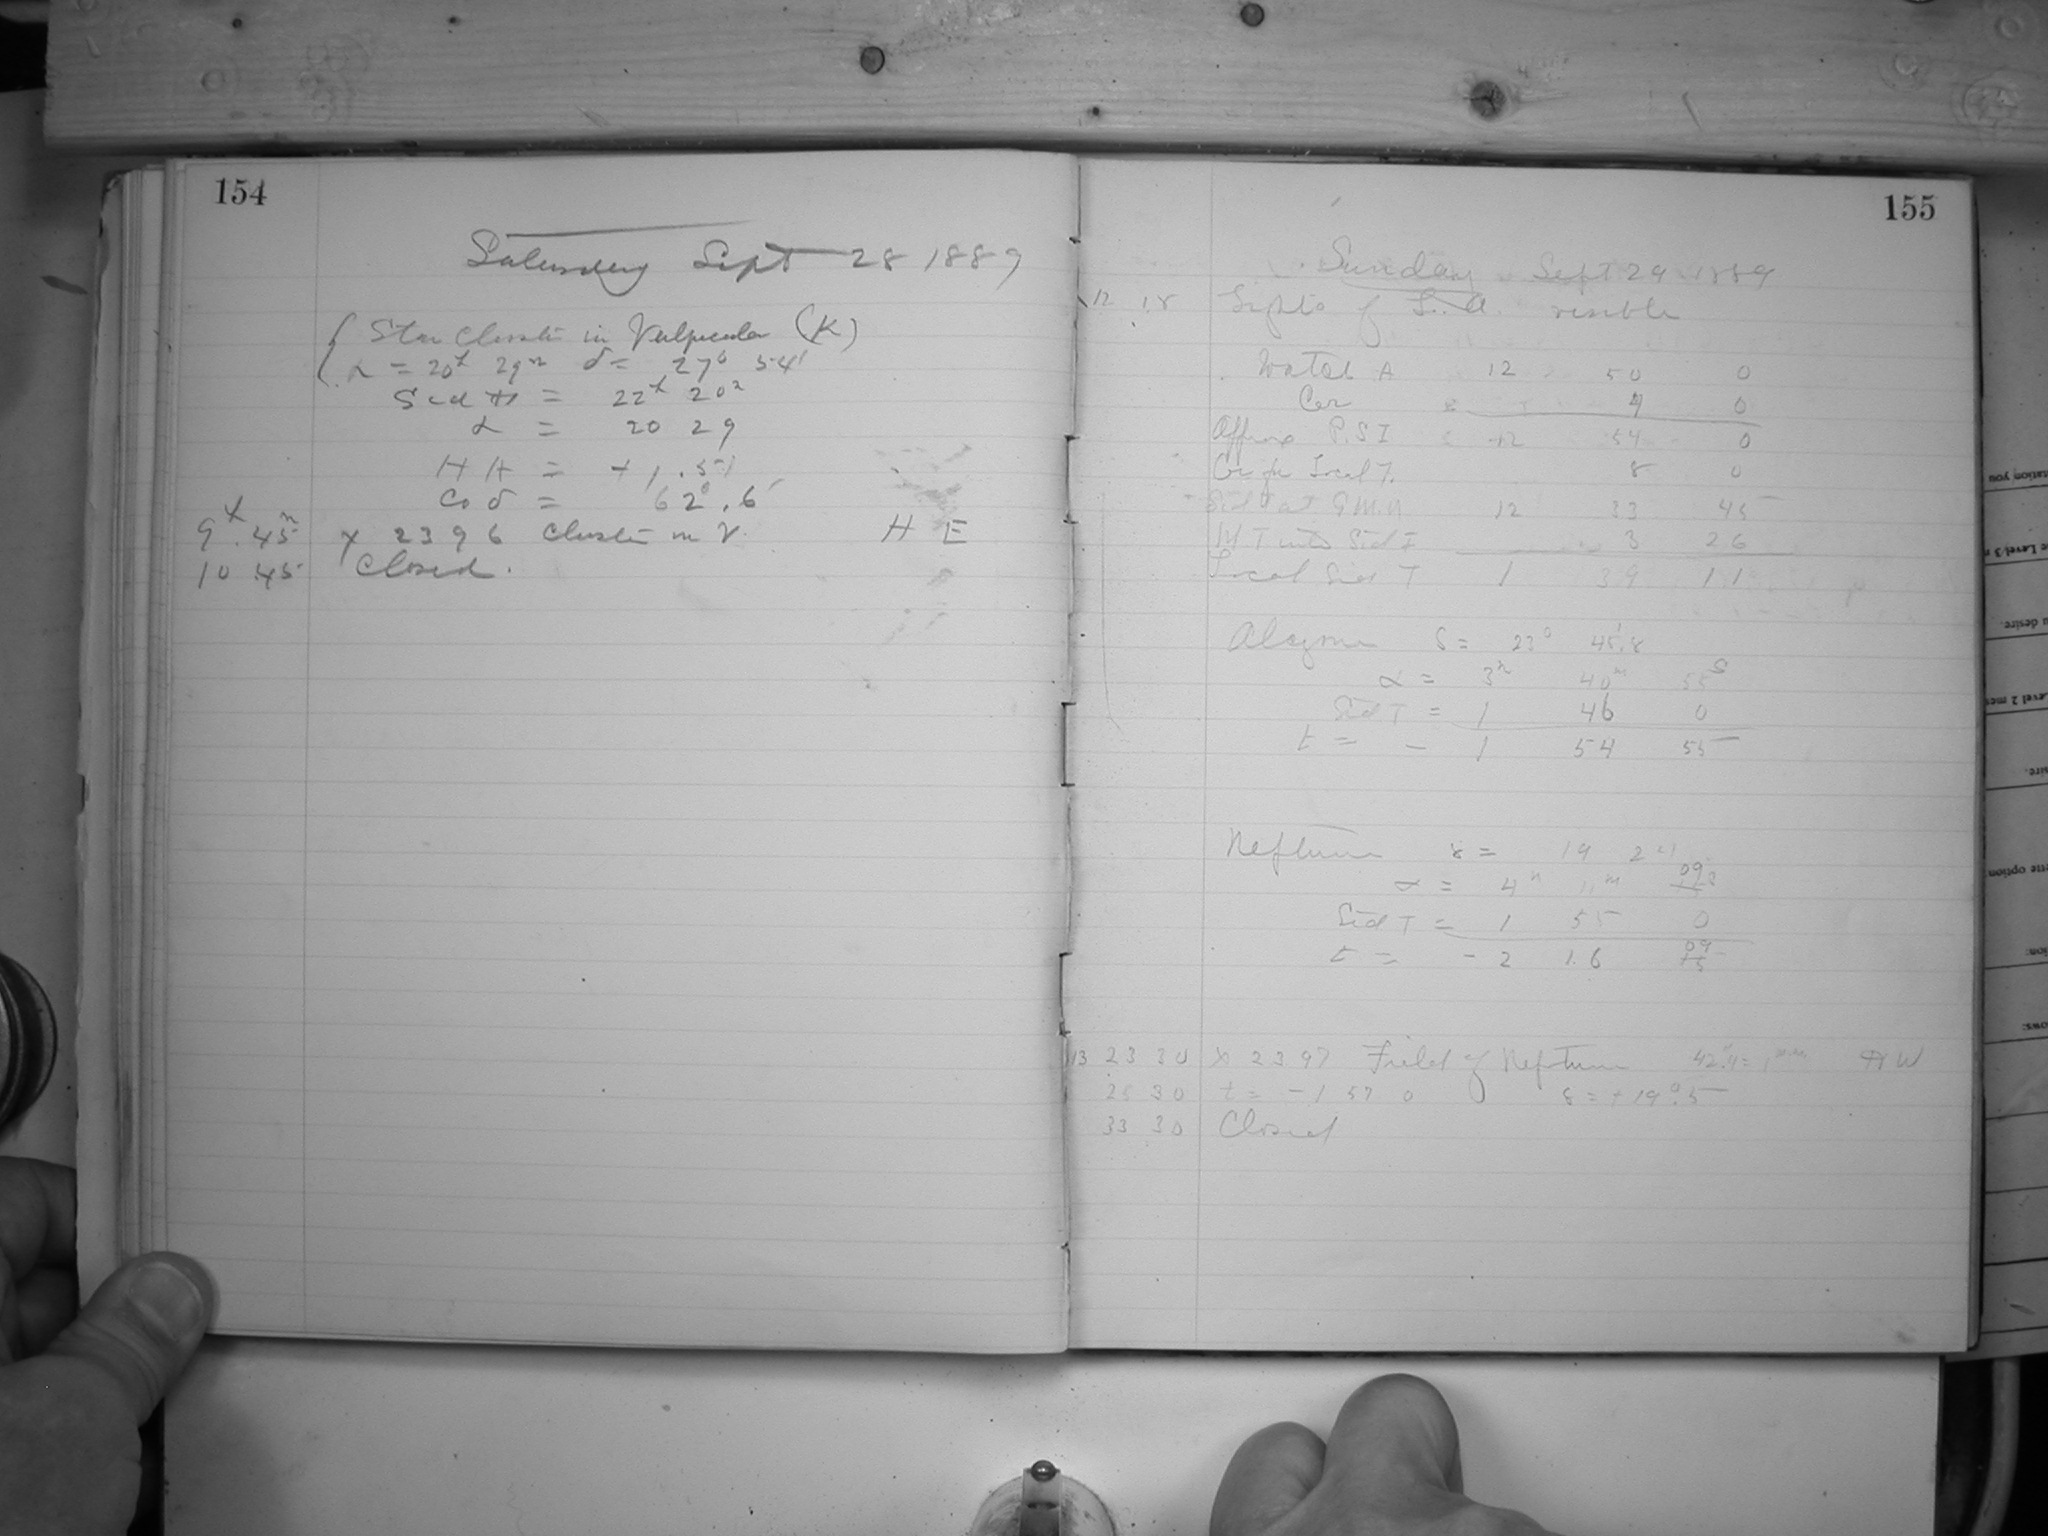 154
Saturday Sept 28 1889
Star Cluster in Vulpecula (K)
α = 20h 29m δ = 27° 54'
Sid H = 22h 20m
α = 20 29
HA = + 1.51
Co δ = 62°.6'
9h 45m X 2396 Cluster in V. H E
10 45 Closed.
155
Sunday Sept 29 1889
12 18 Lights of L. A. visible
Watch A 12 50 0
Cor 4 0
Approx P.S.T 12 54 0
Cor for Local T. 8 0
Sid T at G.M.N 12 33 45
M T into Sid T 3 26
Local Sid T 1 39 11
Alcyone δ = 23° 45'.8
α = 3h 40m 55s
Sid T = 1 46 0
t = - 1 54 55
Neptune δ = 19
α = 4h 11m 09
Sid T = 1 55 0
t = - 2 16 09
13 23 30 X 2397 Field of Neptune 42".4 = 1mm H W
25 30 t = - 1 57 0 δ = + 19°.5
33 30 Closed
tation you
e Level 3
u desire.
Level 2
sire.
ette option
tion:
ows: